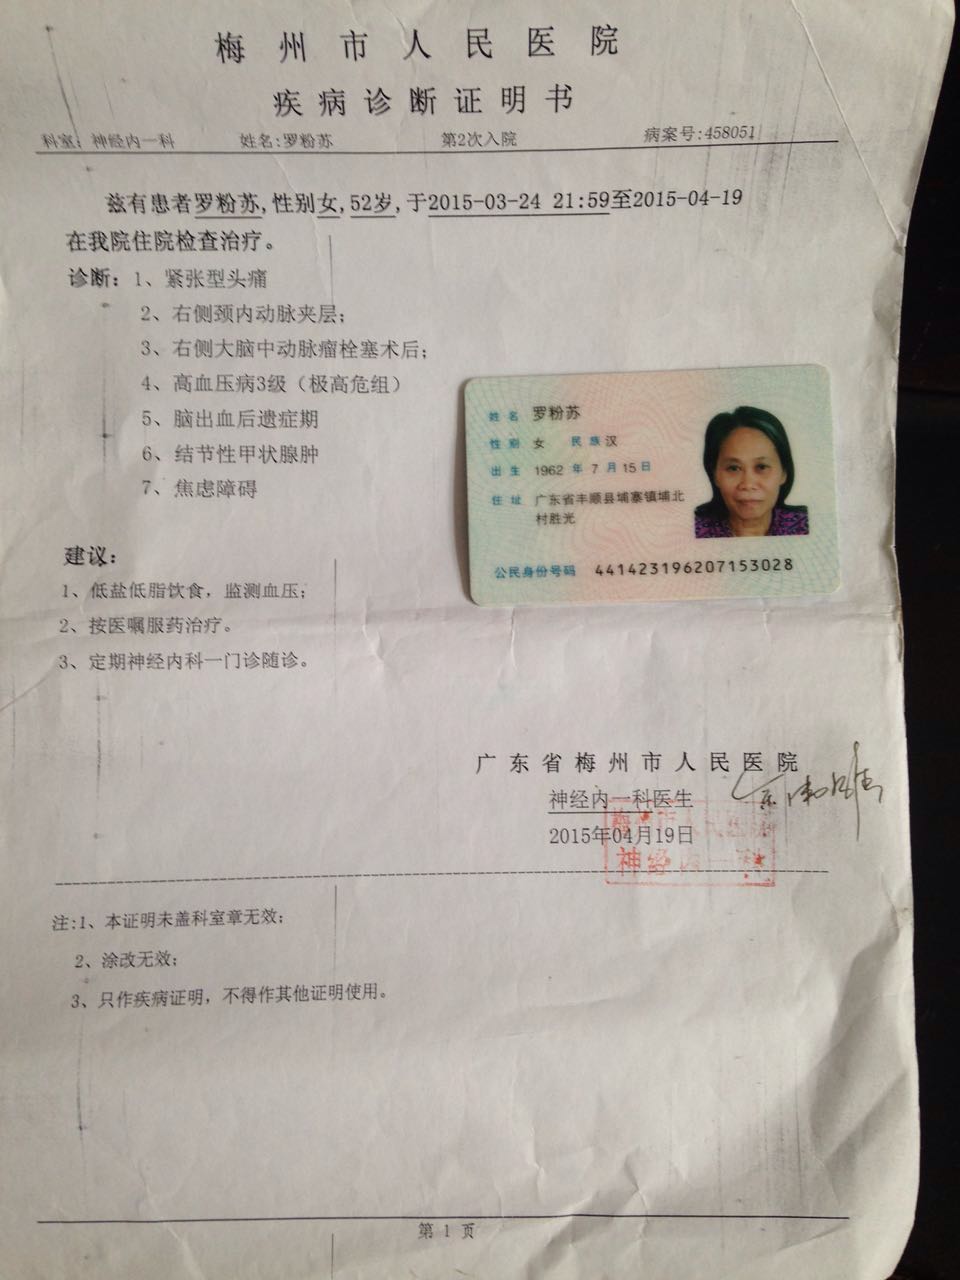 梅州市人民医院
疾病诊断证明书
科室：神经内一科 姓名:罗粉苏 第2次入院 病案号:458051
兹有患者罗粉苏,性别女,52岁,于2015-03-24 21:59至2015-04-19
在我院住院检查治疗。
诊断：1、紧张型头痛
2、右侧颈内动脉夹层；
3、右侧大脑中动脉瘤栓塞术后；
4、高血压病3级（极高危组）
5、脑出血后遗症期
6、结节性甲状腺肿
7、焦虑障碍
姓名 罗粉苏
性别 女 民族 汉
出生 1962 年 7 月 15 日
住址 广东省丰顺县埔寨镇埔北
村胜光
公民身份号码 441423196207153028
建议：
1、低盐低脂饮食，监测血压；
2、按医嘱服药治疗。
3、定期神经内科一门诊随诊。
广东省梅州市人民医院
神经内一科医生
2015年04月19日
梅州市人民医院
神经内一科
注:1、本证明未盖科室章无效；
2、涂改无效；
3、只作疾病证明，不得作其他证明使用。
第 1 页